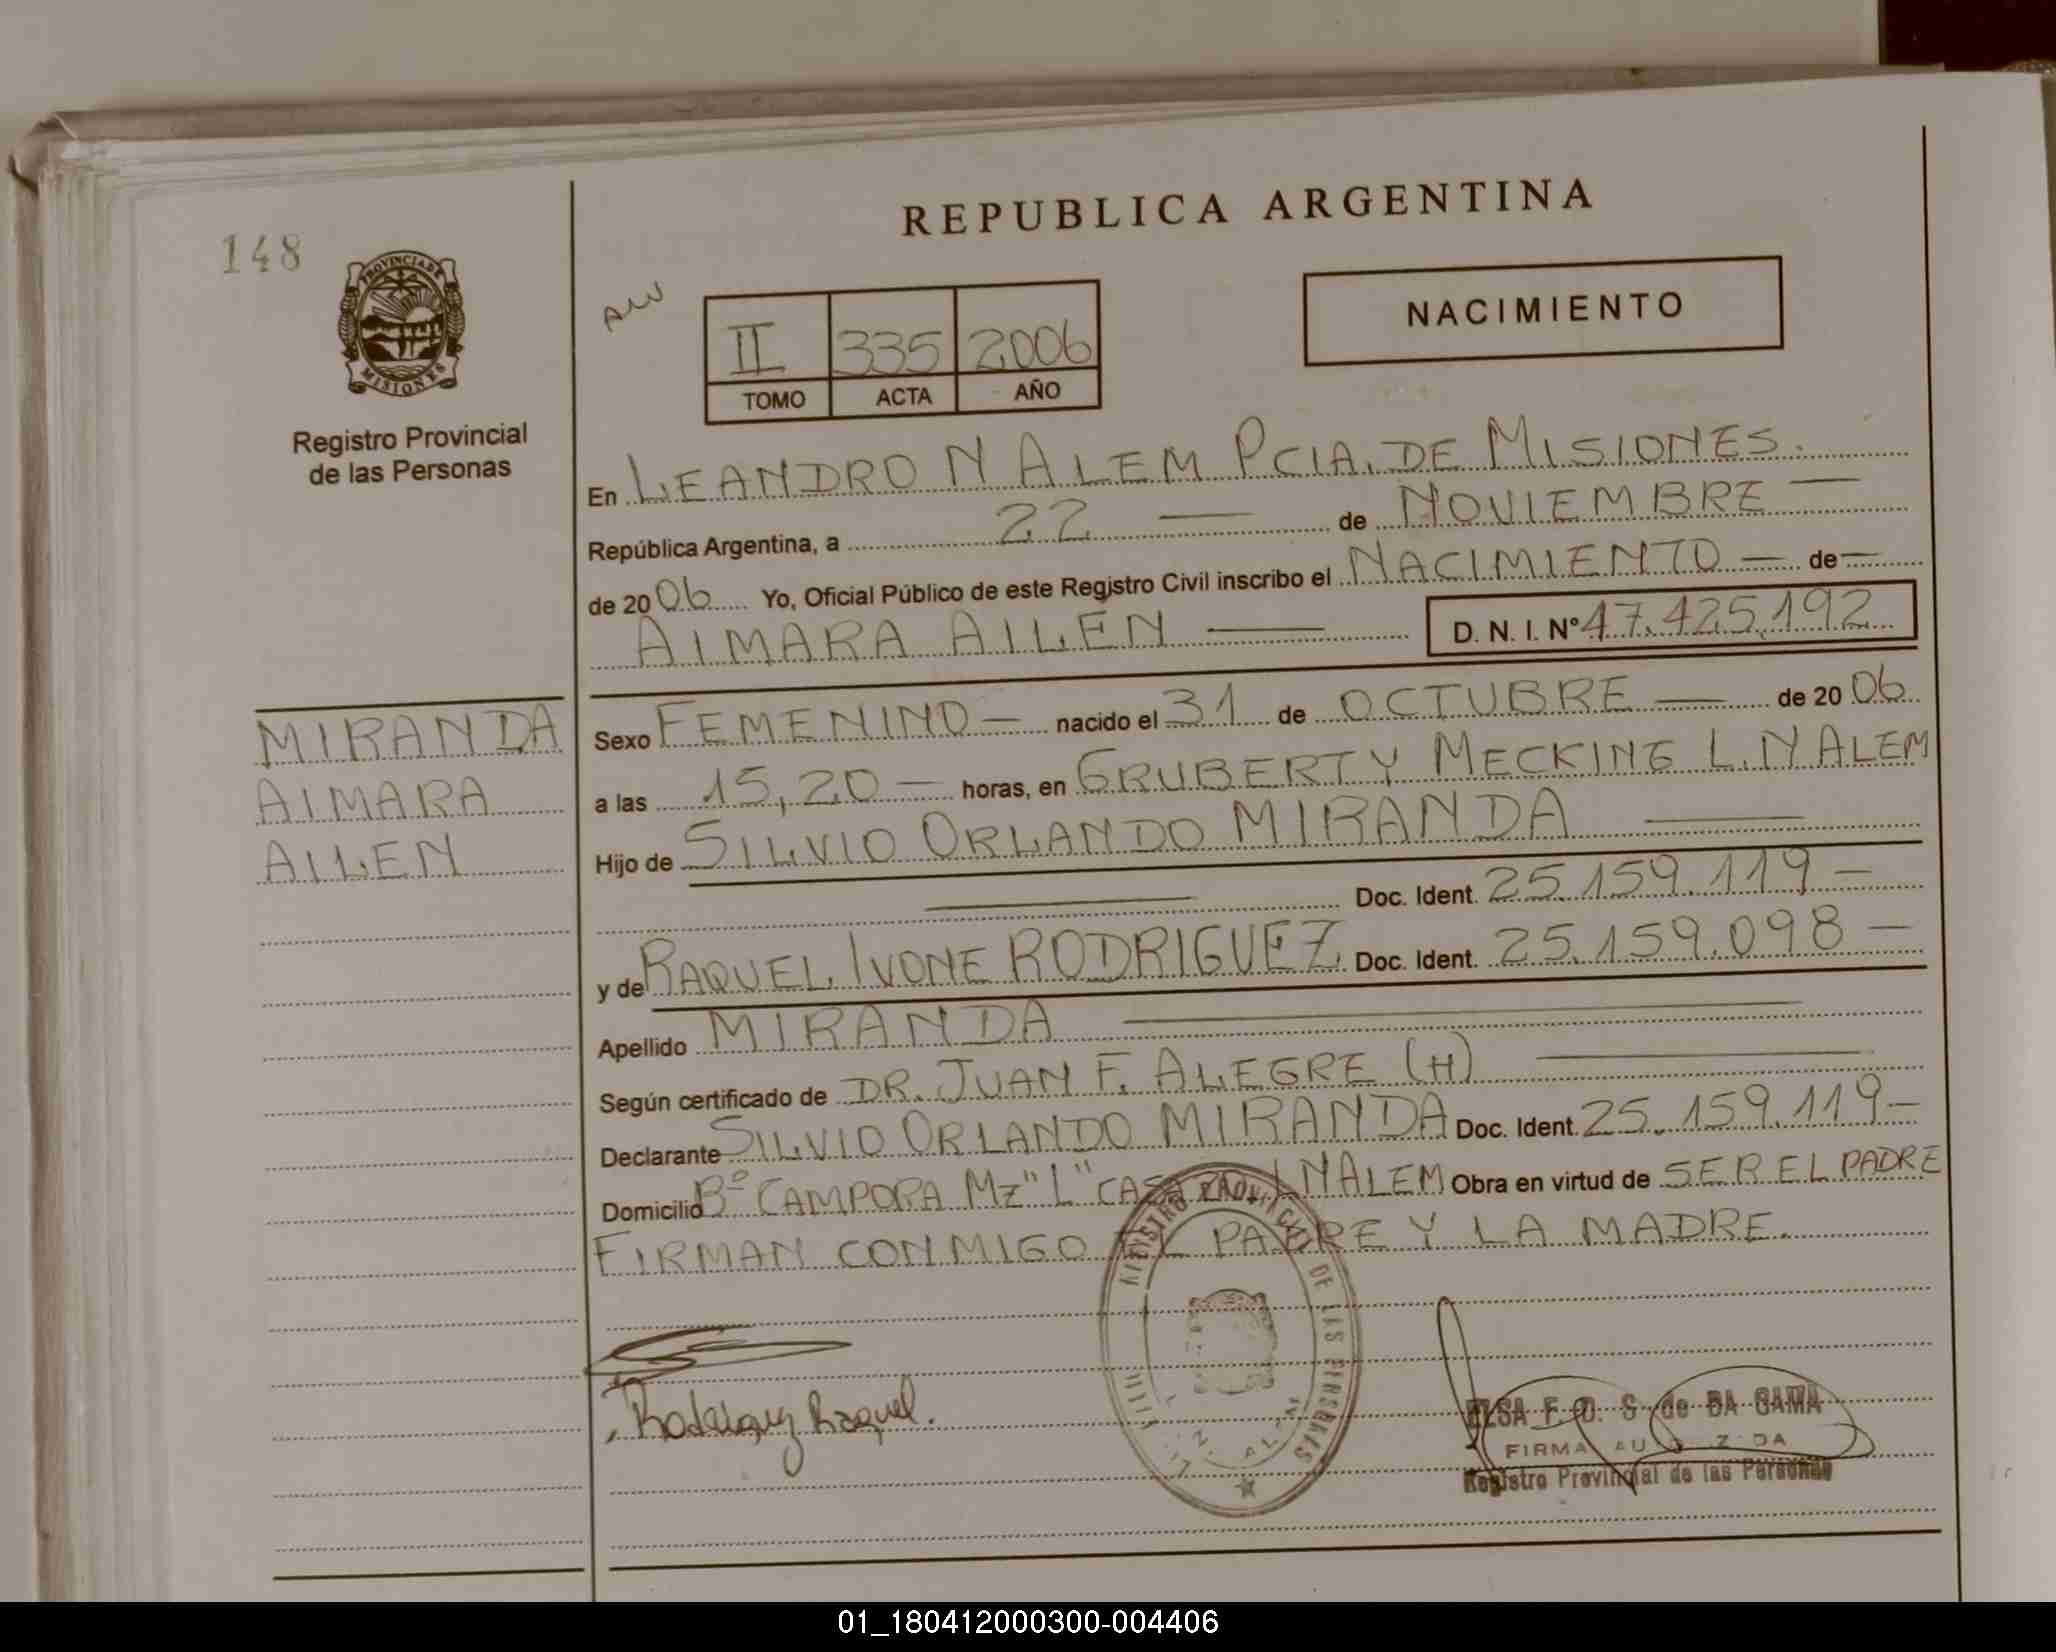 REPUBLICA ARGENTINA
148
PROVINCIA DE MISIONES
Registro Provincial
de las Personas
II 335 2006
TOMO ACTA AÑO
NACIMIENTO
En LEANDRO N ALEM PCIA. DE MISIONES.
República Argentina, a 22 — de NOVIEMBRE —
de 2006 Yo, Oficial Público de este Registro Civil inscribo el NACIMIENTO — de —
AIMARA AILEN — D. N. I. N° 47.425.192
MIRANDA
AIMARA
AILEN
Sexo FEMENINO — nacido el 31 de OCTUBRE — de 2006
a las 15,20 — horas, en GRUBERT Y MECKING L.N ALEM
Hijo de SILVIO ORLANDO MIRANDA —
— Doc. Ident. 25.159.119 —
y de RAQUEL IVONE RODRIGUEZ Doc. Ident. 25.159.098 —
Apellido MIRANDA —
Según certificado de DR. JUAN F. ALEGRE (H) —
Declarante SILVIO ORLANDO MIRANDA Doc. Ident. 25.159.119 —
Domicilio B° CAMPORA MZ "L" CASA LN ALEM Obra en virtud de SER EL PADRE
FIRMAN CONMIGO EL PADRE Y LA MADRE.
REGISTRO PROVINCIAL DE LAS PERSONAS
Rodriguez Raquel.
ELSA F. O. S de DA GAMA
FIRMA AUTORIZADA
Registro Provincial de las Personas
01_180412000300-004406